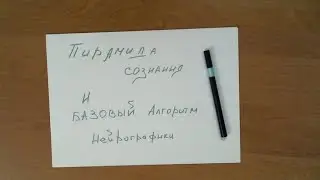 Пирамида
сознания
и
5
Базовый Алгоритм
3
Нейрографики